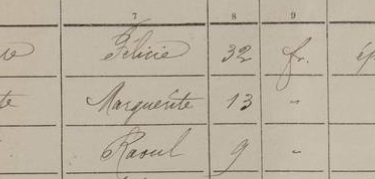 7 8 9
Félicie 32 fr.
Marguerite 13 "
Raoul 9 "